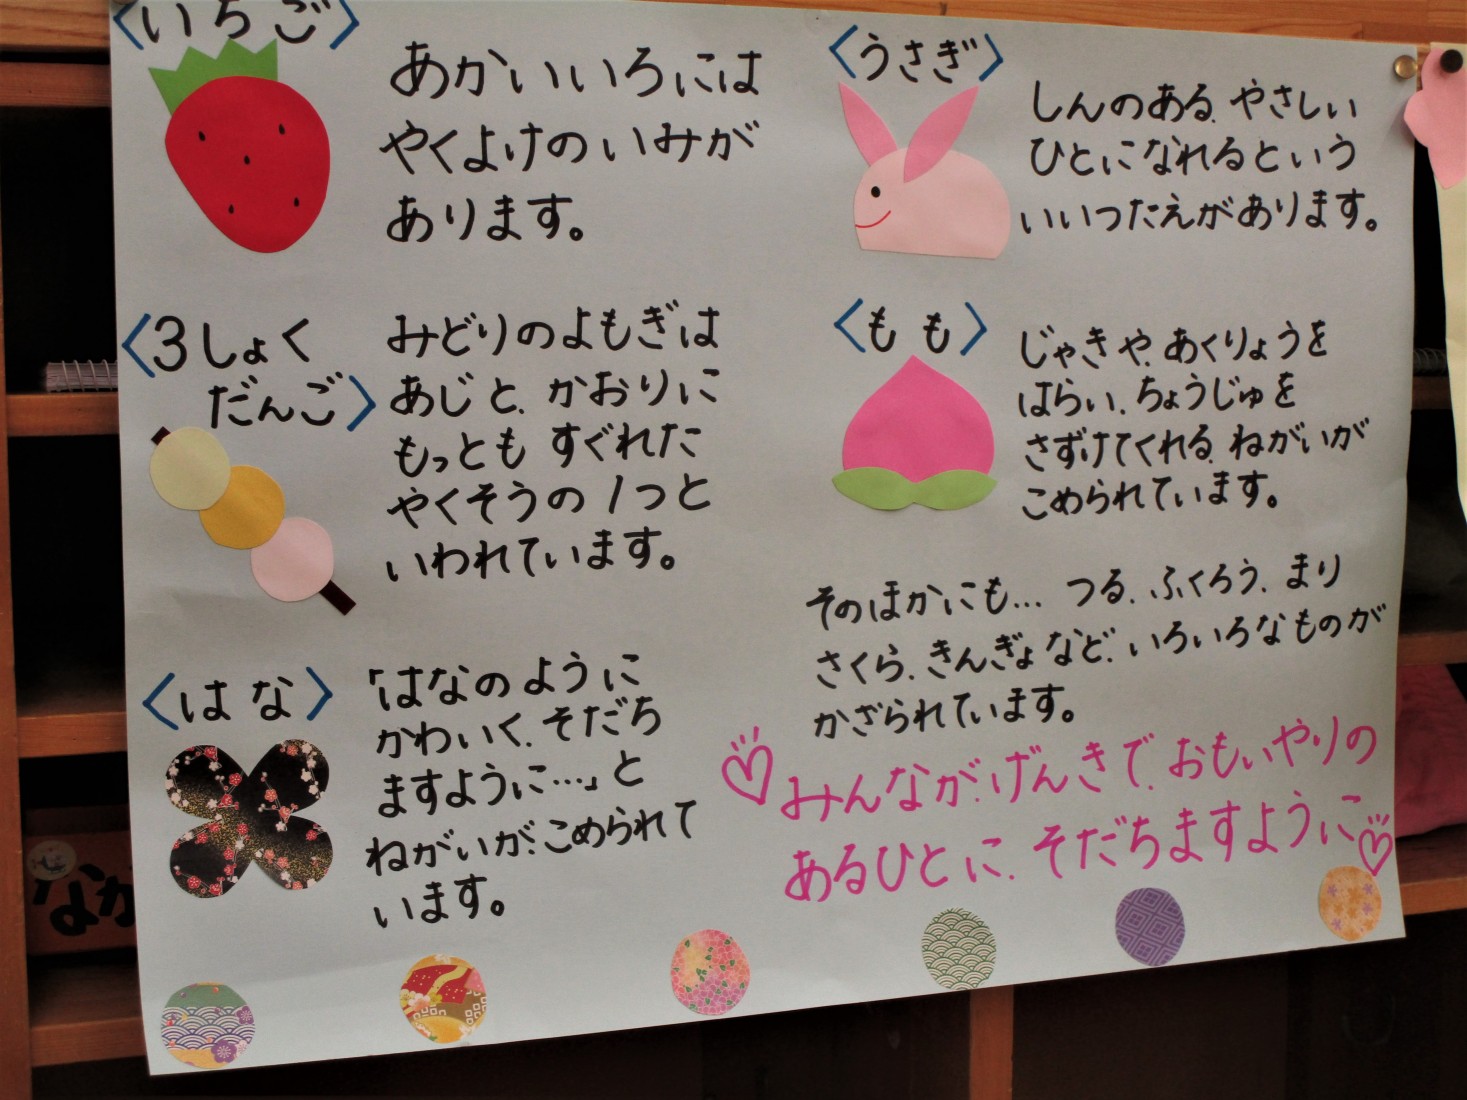 〈いちご〉
あかいいろには
やくよけのいみが
あります。
〈3しょく
だんご〉
みどりのよもぎは
あじと、かおりに
もっとも すぐれた
やくそうの1つと
いわれています。
〈はな〉
「はなのように
かわいく、そだち
ますように…」と
ねがいが、こめられて
います。
〈うさぎ〉
しんのある、やさしい
ひとになれるという
いいつたえがあります。
〈もも〉
じゃきや、あくりょうを
はらい、ちょうじゅを
さずけてくれる、ねがいが
こめられています。
そのほかにも… つる、ふくろう、まり
さくら、きんぎょなど、いろいろなものが
かざられています。
みんなが、げんきで、おもいやりの
あるひとに、そだちますように